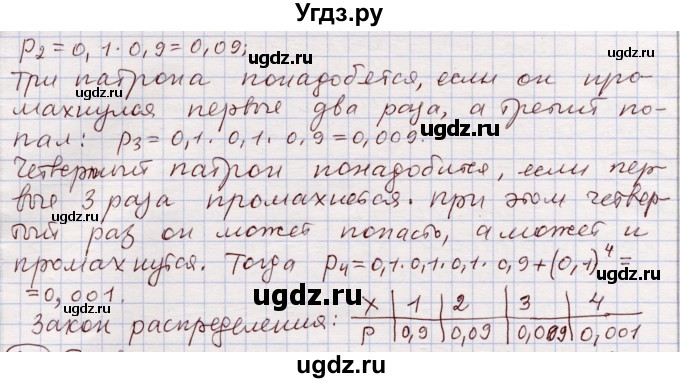 Угдз.ру
p₂ = 0,1·0,9 = 0,09;
gdz.ru
gdz.ru
Три патрона понадобятся, если он про-
махнулся первые два раза, а третий по-
пал: p₃ = 0,1·0,1·0,9 = 0,009.
gdz.ru
gdz.ru
Четвертый патрон понадобится, если пер-
вые 3 раза промахнется. При этом четвер-
gdz.ru
тый раз он может попасть, а может и
gdz.ru
промахнутся. Тогда p₄ = 0,1·0,1·0,1·0,9 + (0,1)⁴ =
= 0,001.
gdz.ru
Закон распределения: X 1 2 3 4
P 0,9 0,09 0,009 0,001
gdz.ru
gdz.ru